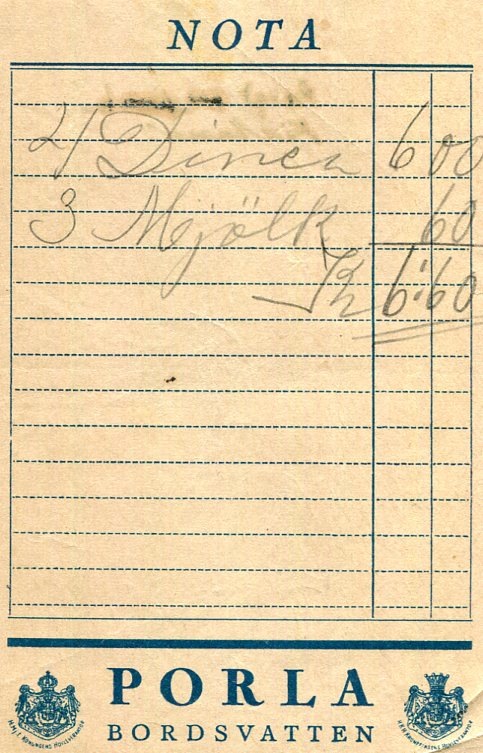 NOTA
4 Dinea 6 00
3 Mjölk 60
Kr 6:60
PORLA
BORDSVATTEN
H.M:T KONUNGENS HOFLEVERANTÖR
H.K.H. KRONPRINSENS HOFLEVERANTÖR